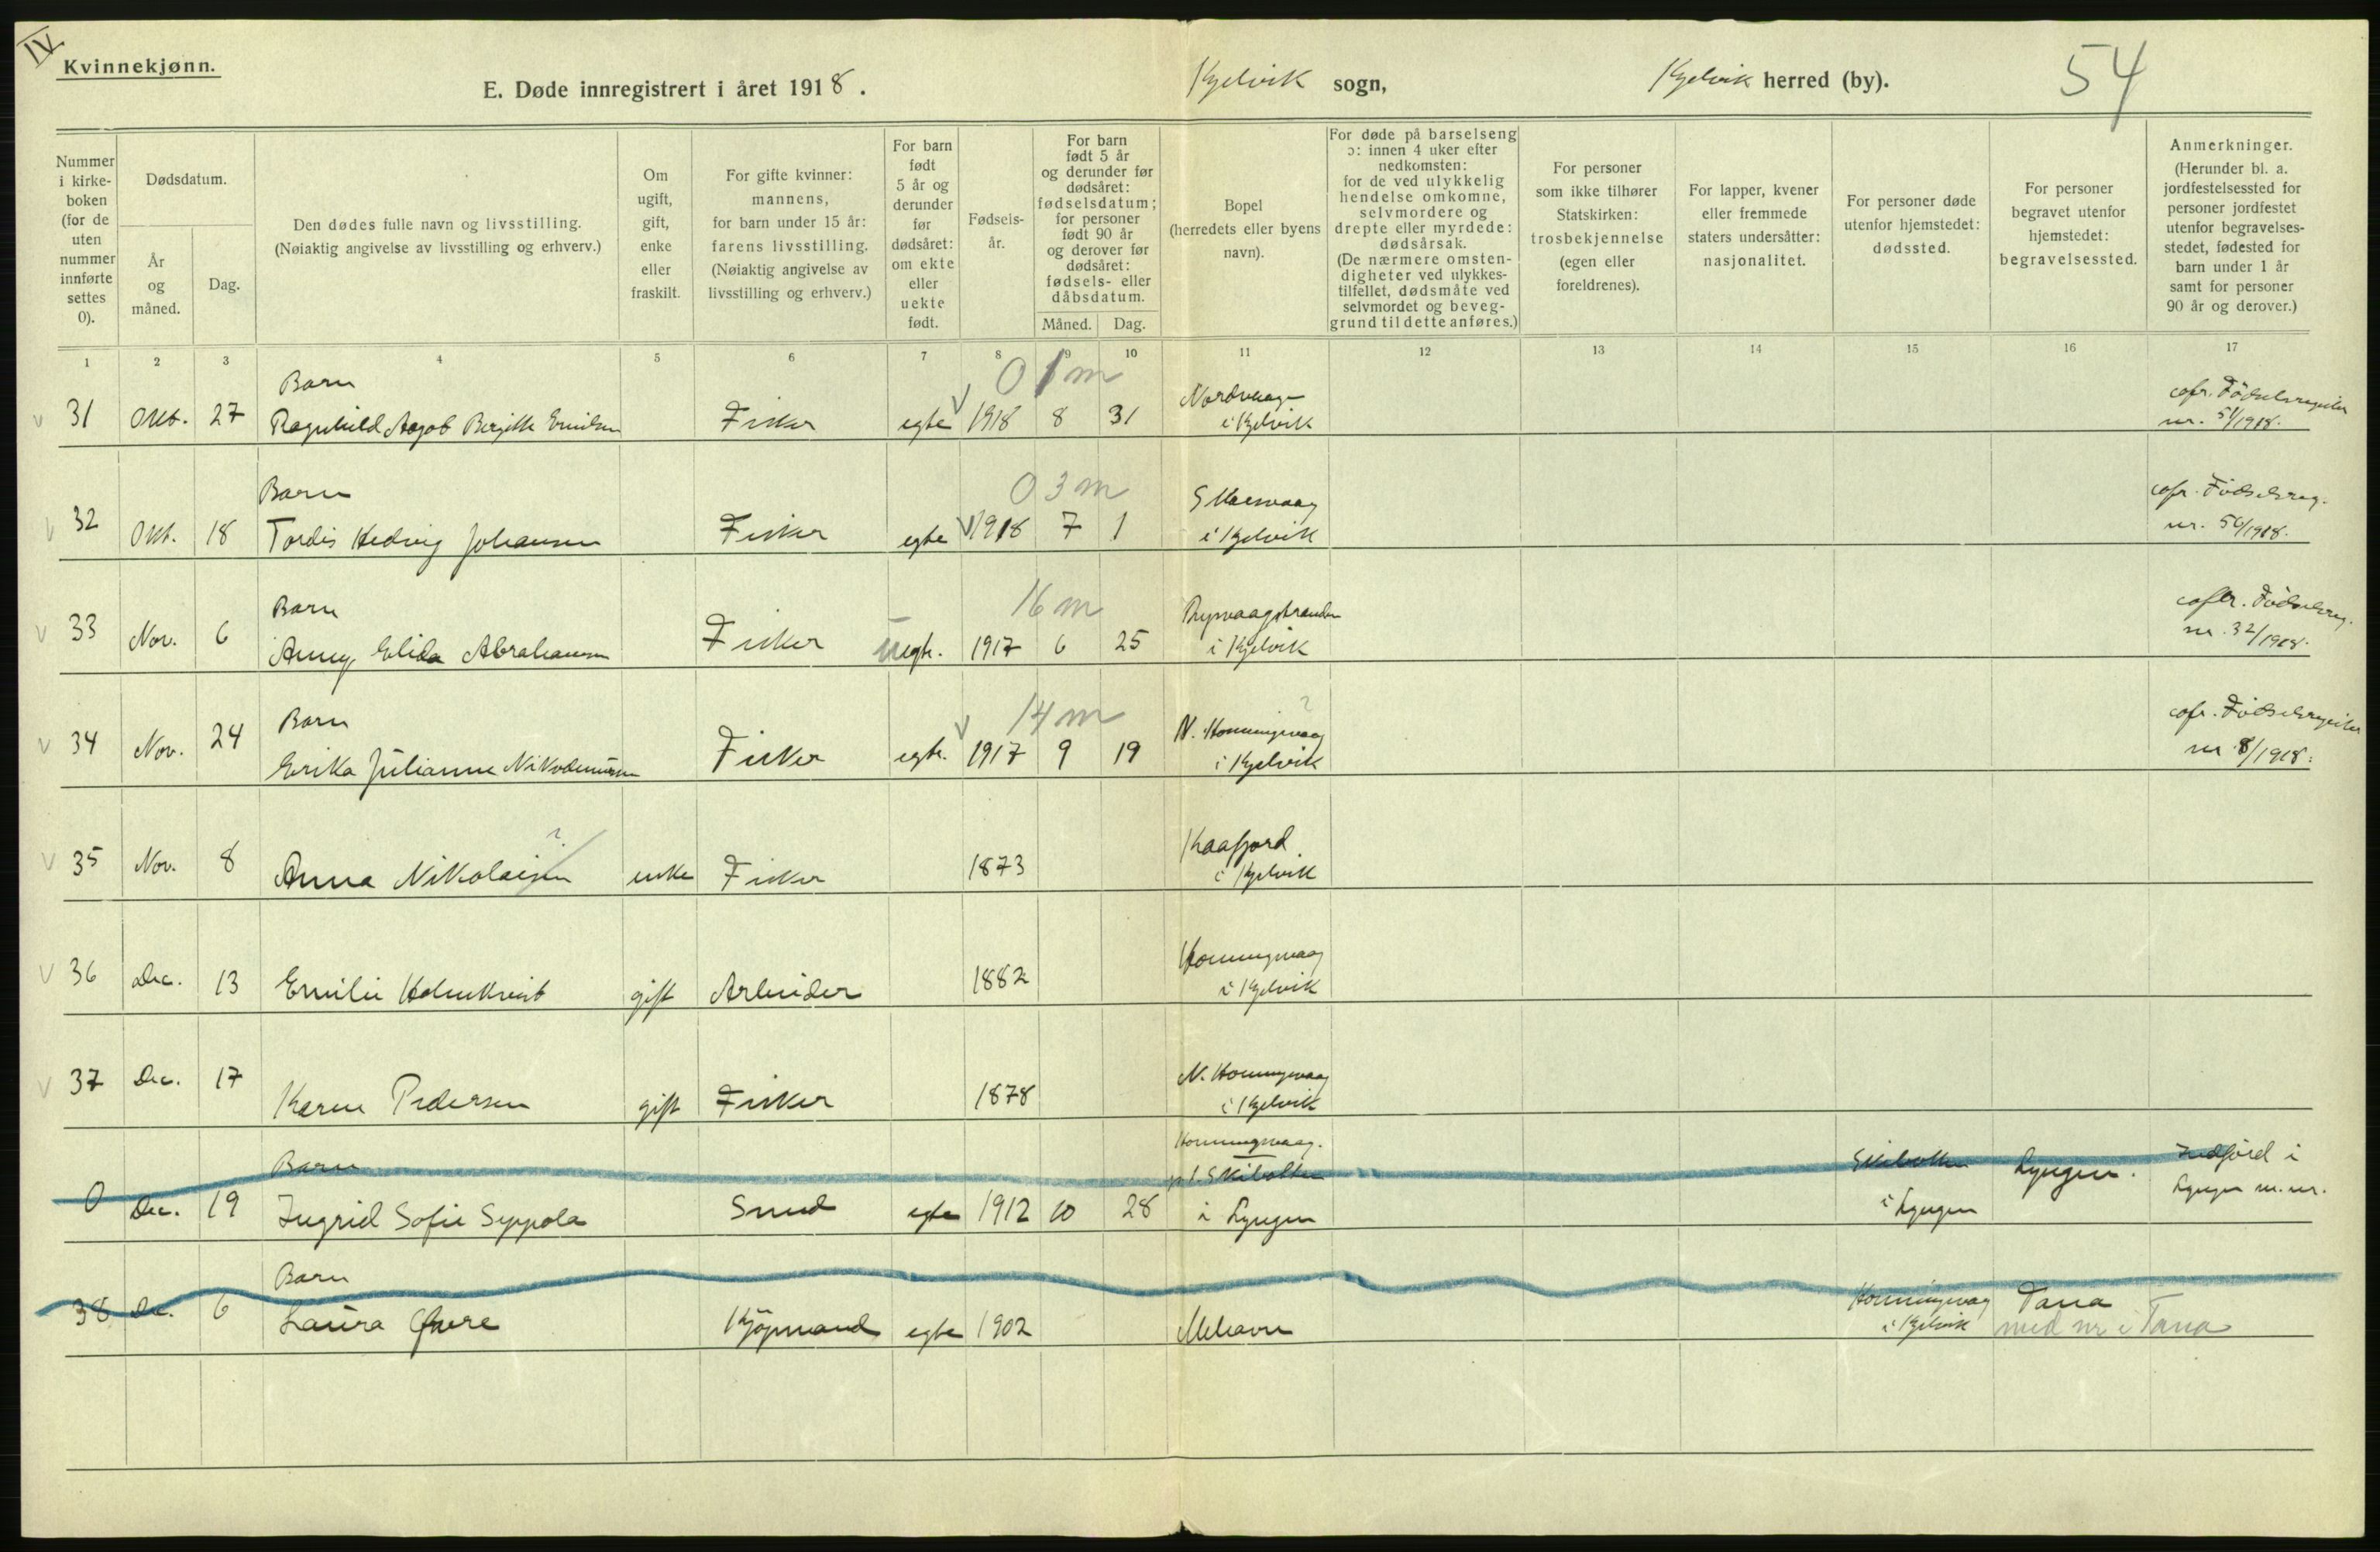 IV
Kvinnekjønn.
E. Døde innregistrert i året 1918.
Kjelvik sogn,
Kjelvik herred (by).
54
Nummer i kirke- boken (for de uten nummer innførte settes 0).
Dødsdatum.
År og måned.
Dag.
Den dødes fulle navn og livsstilling.
(Nøiaktig angivelse av livsstilling og erhverv.)
Om ugift, gift, enke eller fraskilt.
For gifte kvinner: mannens, for barn under 15 år: farens livsstilling. (Nøiaktig angivelse av livsstilling og erhverv.)
For barn født 5 år og derunder før dødsåret: om ekte eller uekte født.
Fødsels- år.
For barn født 5 år og derunder før dødsåret: fødselsdatum; for personer født 90 år og derover før dødsåret: fødsels- eller dåbsdatum.
Måned.
Dag.
Bopel (herredets eller byens navn).
For døde på barselseng ɔ: innen 4 uker efter nedkomsten: for de ved ulykkelig hendelse omkomne, selvmordere og drepte eller myrdede: dødsårsak. (De nærmere omsten- digheter ved ulykkes- tilfellet, dødsmåte ved selvmordet og beveg- grund til dette anføres.)
For personer som ikke tilhører Statskirken: trosbekjennelse (egen eller foreldrenes).
For lapper, kvener eller fremmede staters undersåtter: nasjonalitet.
For personer døde utenfor hjemstedet: dødssted.
For personer begravet utenfor hjemstedet: begravelsessted.
Anmerkninger. (Herunder bl. a. jordfestelsessted for personer jordfestet utenfor begravelses- stedet, fødested for barn under 1 år samt for personer 90 år og derover.)
1 2 3 4 5 6 7 8 9 10 11 12 13 14 15 16 17
Barn 0 1 m Nordvaag cofr. Födselsregister
31 Okt. 27 Ragnhild Aagot Birgitte Emilsen Fisker egte 1918 8 31 i Kjelvik nr. 51/1918.
Barn 0 3 m Skarsvaag cofr. Födselsreg.
32 Okt. 18 Tordis Hedvig Johansen Fisker egte 1918 7 1 i Kjelvik nr. 56/1918.
Barn 16 m cofr. Födselsreg.
33 Nov. 6 Anny Elida Abrahamsen Fisker uegte. 1917 6 25 i Kjelvik nr. 32/1918.
Barn 14 m N. Honningsvaag ? cofr. Födselsregister
34 Nov. 24 Erika Julianne Nikodemusen Fisker egte. 1917 9 19 i Kjelvik nr. 8/1918.
? Kaafjord
35 Nov. 8 Anna Nikolaisen enke Fisker 1873 i Kjelvik
Honningsvaag
36 Dec. 13 Emilie Holmkvist gift Arbeider 1882 i Kjelvik
N. Honningsvaag
37 Dec. 17 Karen Pedersen gift Fisker 1878 i Kjelvik
Honningsvaag.
Barn p.t. Skibotten Skibotten Lyngen. Indförd i
0 Dec. 19 Ingrid Sofie Seppola Smed egte 1912 10 28 i Lyngen i Lyngen Lyngen m. nr.
Barn Honningsvag Tana
38 Dec. 6 Laura Kjöpmand egte 1902 Mehavn i Kjelvik med nr i Tana